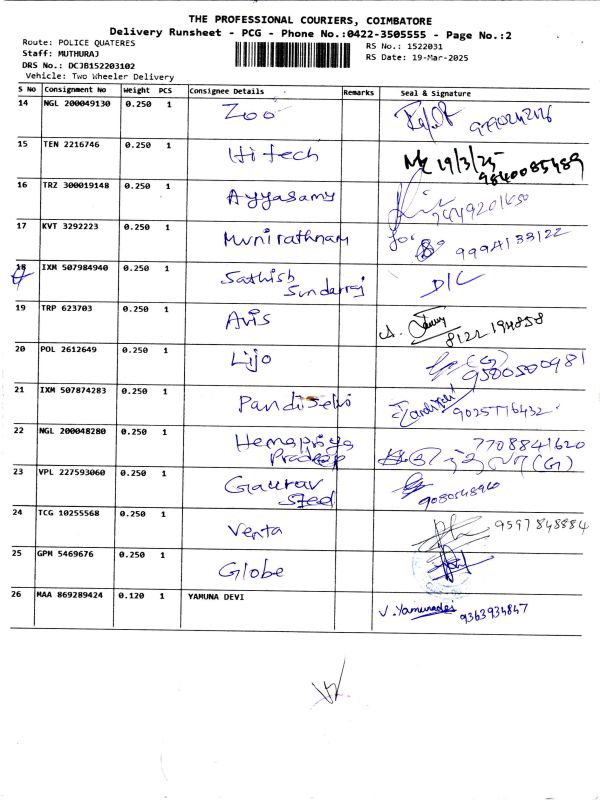 THE PROFESSIONAL COURIERS, COIMBATORE
Delivery Runsheet - PCG - Phone No.:0422-3505555 - Page No.:2
Route: POLICE QUATERES
RS No.: 1522031
Staff: MUTHURAJ
RS Date: 19-Mar-2025
DRS No.: DCJB152203102
Vehicle: Two Wheeler Delivery
S No Consignment No Weight PCS Consignee Details Remarks Seal & Signature
14 NGL 200049130 0.250 1 Zoo
15 TEN 2216746 0.250 1 Hitech 19/3/25
9840085489
16 TRZ 300019148 0.250 1 Ayyasamy
17 KVT 3292223 0.250 1 Munirathnam for 9994133122
18 IXM 507984940 0.250 1 Sathish D/C
Sundarraj
19 TRP 623703 0.250 1 Avis
8122 194858
20 POL 2612649 0.250 1 Lijo (G)
9500500981
21 IXM 507874283 0.250 1 Pandiselvi 9025776432
22 NGL 200048280 0.250 1 Hemapriya 7708841620
Pradeep (G)
23 VPL 227593060 0.250 1 Gaurav
Steel 9080548960
24 TCG 10255568 0.250 1 Venta 9597848884
25 GPM 5469676 0.250 1 Globe
26 MAA 869289424 0.120 1 YAMUNA DEVI V. Yamunadevi 9363934847